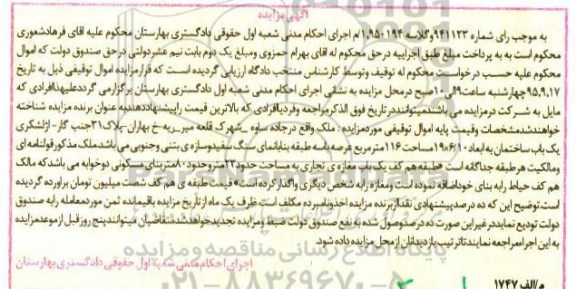 آگهی مزایده
به موجب رای شماره ۹۴۱۱۲۳وکلاسه ۱٫۹۵۰۱۹۴/م اجرای احکام مدنی شعبه اول حقوقی دادگستری بهارستان محکوم علیه آقای فرهادشعوری
محکوم است به پرداخت مبلغ طبق اجراییه در حق محکوم له آقای بهرام حمزوی ومبلغ یک دوم بابت نیم عشردولتی در حق صندوق دولت که اموال
محکوم علیه حسب درخواست محکوم له توقیف وتوسط کارشناس منتخب دادگاه ارزیابی گردیده است که قرارمزایده اموال توقیفی ذیل به تاریخ
۹۵٫۹٫۱۷چهارشنبه ساعت۹الی۱۰صبح درمحل مزایده به نشانی اجرای احکام مدنی شعبه اول دادگستری بهارستان برگزارمی گرددعلیهذاافرادی که
مایل به شرکت درمزایده می باشدمیتوانند درتاریخ فوق الذکرمراجعه وفردیاافرادی که بالاترین قیمت راپیشنهاددهندبه عنوان برنده مزایده شناخته
خواهندشدمشخصات وقیمت پایه اموال توقیفی موردمزایده : ملک واقع درجاده ساوه _شهرک قلعه میر_به خ بهاران-پلاک۳۱جنب گاز- ازلشکری
یک باب ساختمان به ابعاد ۱۹٫۰۶٫۱۰مساحت۱۱۶مترمربع عرصه باسه طبقه بنابانمای سنگ سفیدوسازه ی بتنی وجنوبی می باشدملک مذکورقولنامه ای
ومالکیت هرطبقه جداگانه است #طبقه هم کف یک باب مغازه ی تجاری به مساحت حدود۲۳مترحدود۸۰متربنای مسکونی دوخوابه می باشدکه مالک
هم کف حیاط رابه بنای خوداضافه نموده است ومغازه رابه شخص دیگری واگذارکرده است# قیمت طبقه ی هم کف شصت میلیون تومان برآورده گردیده
است.توضیح این که ده درصدپیشنهادی نقداًازبرنده مزایده اخذوبرنده مکلف است ظرف یک ماه از تاریخ مزایده باقیمانده ثمن موردمعامله رابه صندوق
دولت تودیع نمایددرغیراین صورت ده درصدوصول شده به نفع صندوق دولت ضبط ومزایده تجدیدخواهدشد.متقاضیان میتوانندپنج روزقبل ازموعدمزایده
به این اجرامراجعه نمایندتاترتیب بازدیدآنان ازمحل مزایده داده شود.
اجرای احکام مدنی شعبه اول حقوقی دادگستری بهارستان
م/الف ۱۷۴۷
پایگاه اطلاع رسانی مناقصه و مزایده
ParsNamadData
۰۲۱-۸۸۳۴۹۶۷۰-۵